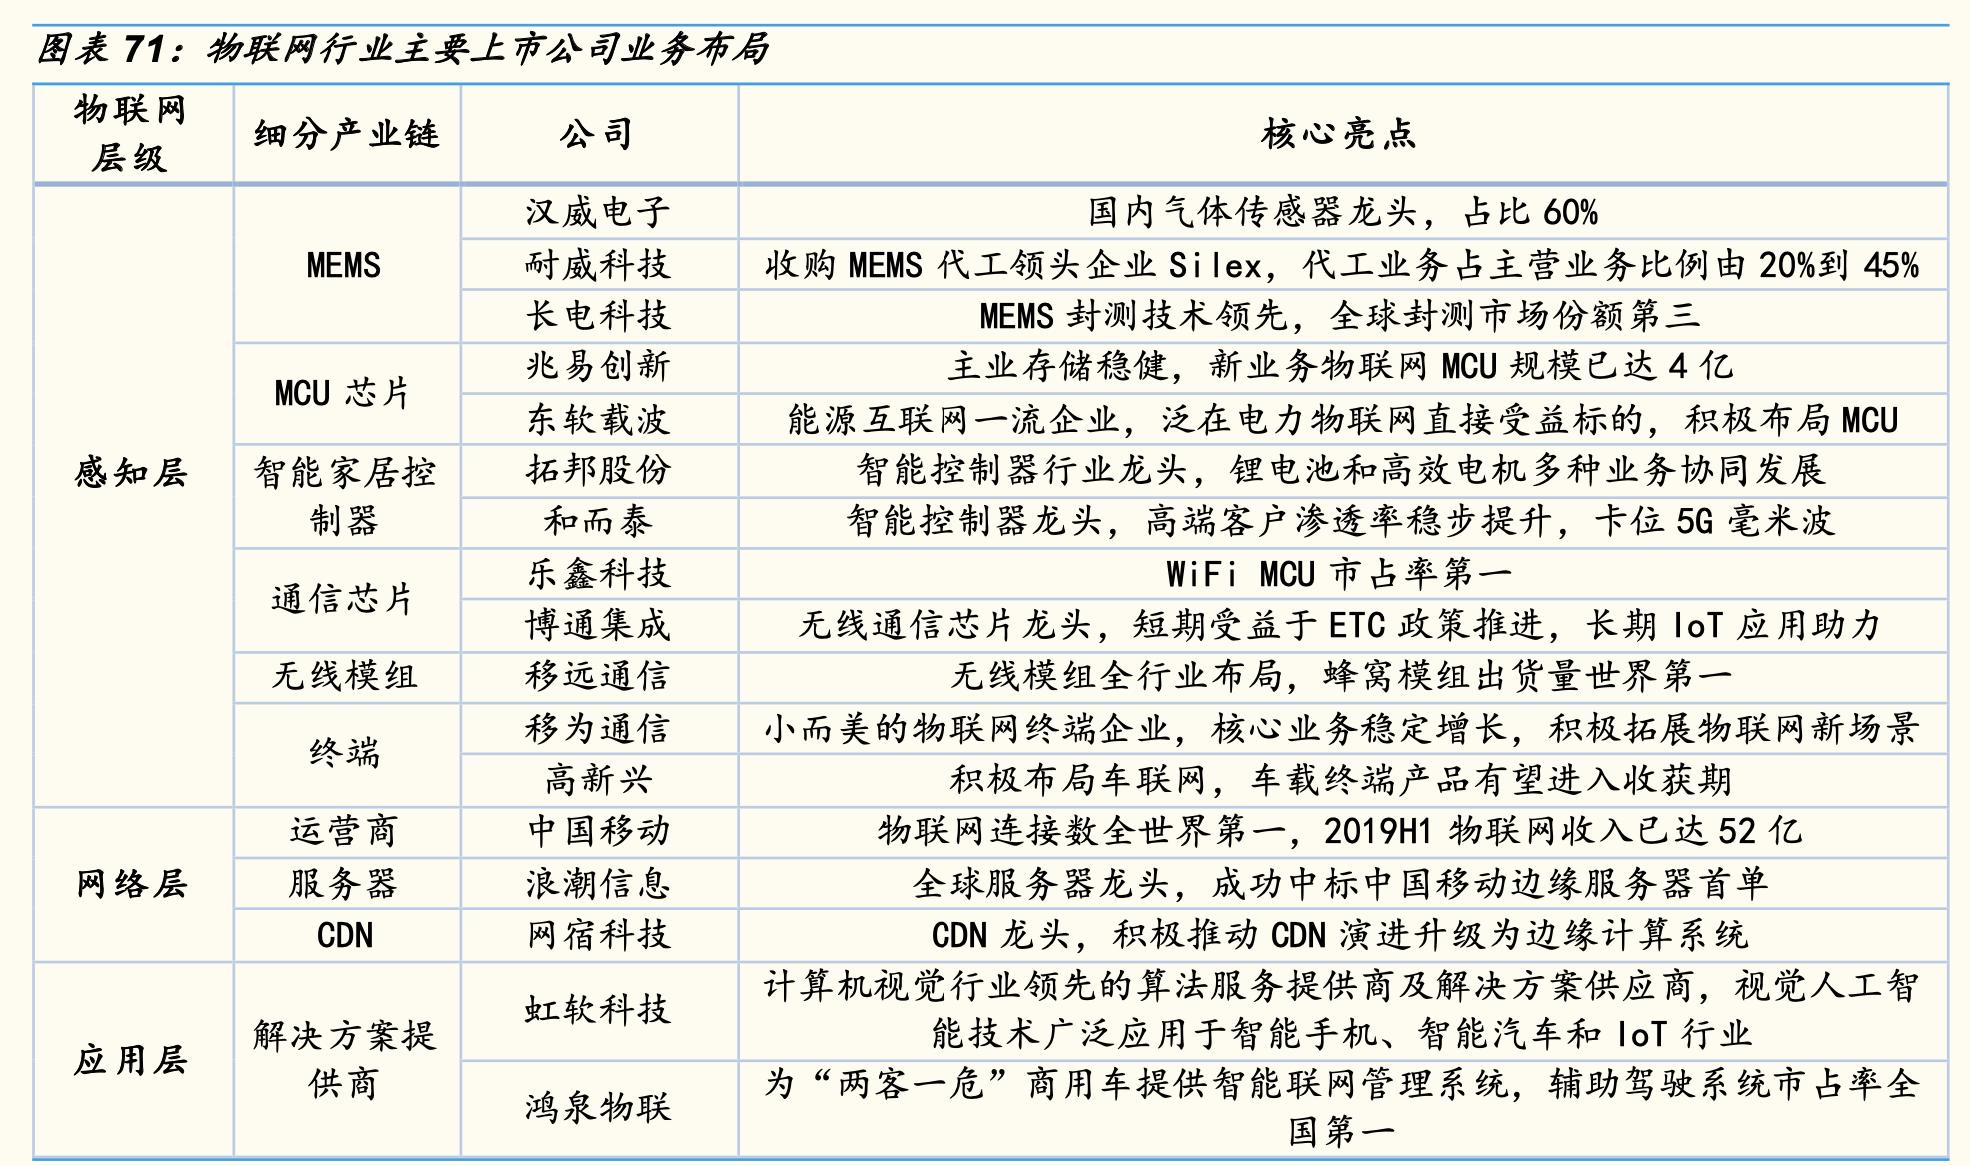 图表 71：物联网行业主要上市公司业务布局
物联网
层级
细分产业链
公司
核心亮点
感知层
MEMS
汉威电子
国内气体传感器龙头，占比 60%
耐威科技
收购 MEMS 代工领头企业 Silex，代工业务占主营业务比例由 20%到 45%
长电科技
MEMS 封测技术领先，全球封测市场份额第三
MCU 芯片
兆易创新
主业存储稳健，新业务物联网 MCU 规模已达 4 亿
东软载波
能源互联网一流企业，泛在电力物联网直接受益标的，积极布局 MCU
智能家居控
制器
拓邦股份
智能控制器行业龙头，锂电池和高效电机多种业务协同发展
和而泰
智能控制器龙头，高端客户渗透率稳步提升，卡位 5G 毫米波
通信芯片
乐鑫科技
WiFi MCU 市占率第一
博通集成
无线通信芯片龙头，短期受益于 ETC 政策推进，长期 IoT 应用助力
无线模组
移远通信
无线模组全行业布局，蜂窝模组出货量世界第一
终端
移为通信
小而美的物联网终端企业，核心业务稳定增长，积极拓展物联网新场景
高新兴
积极布局车联网，车载终端产品有望进入收获期
网络层
运营商
中国移动
物联网连接数全世界第一，2019H1 物联网收入已达 52 亿
服务器
浪潮信息
全球服务器龙头，成功中标中国移动边缘服务器首单
CDN
网宿科技
CDN 龙头，积极推动 CDN 演进升级为边缘计算系统
应用层
解决方案提
供商
虹软科技
计算机视觉行业领先的算法服务提供商及解决方案供应商，视觉人工智
能技术广泛应用于智能手机、智能汽车和 IoT 行业
鸿泉物联
为“两客一危”商用车提供智能联网管理系统，辅助驾驶系统市占率全
国第一